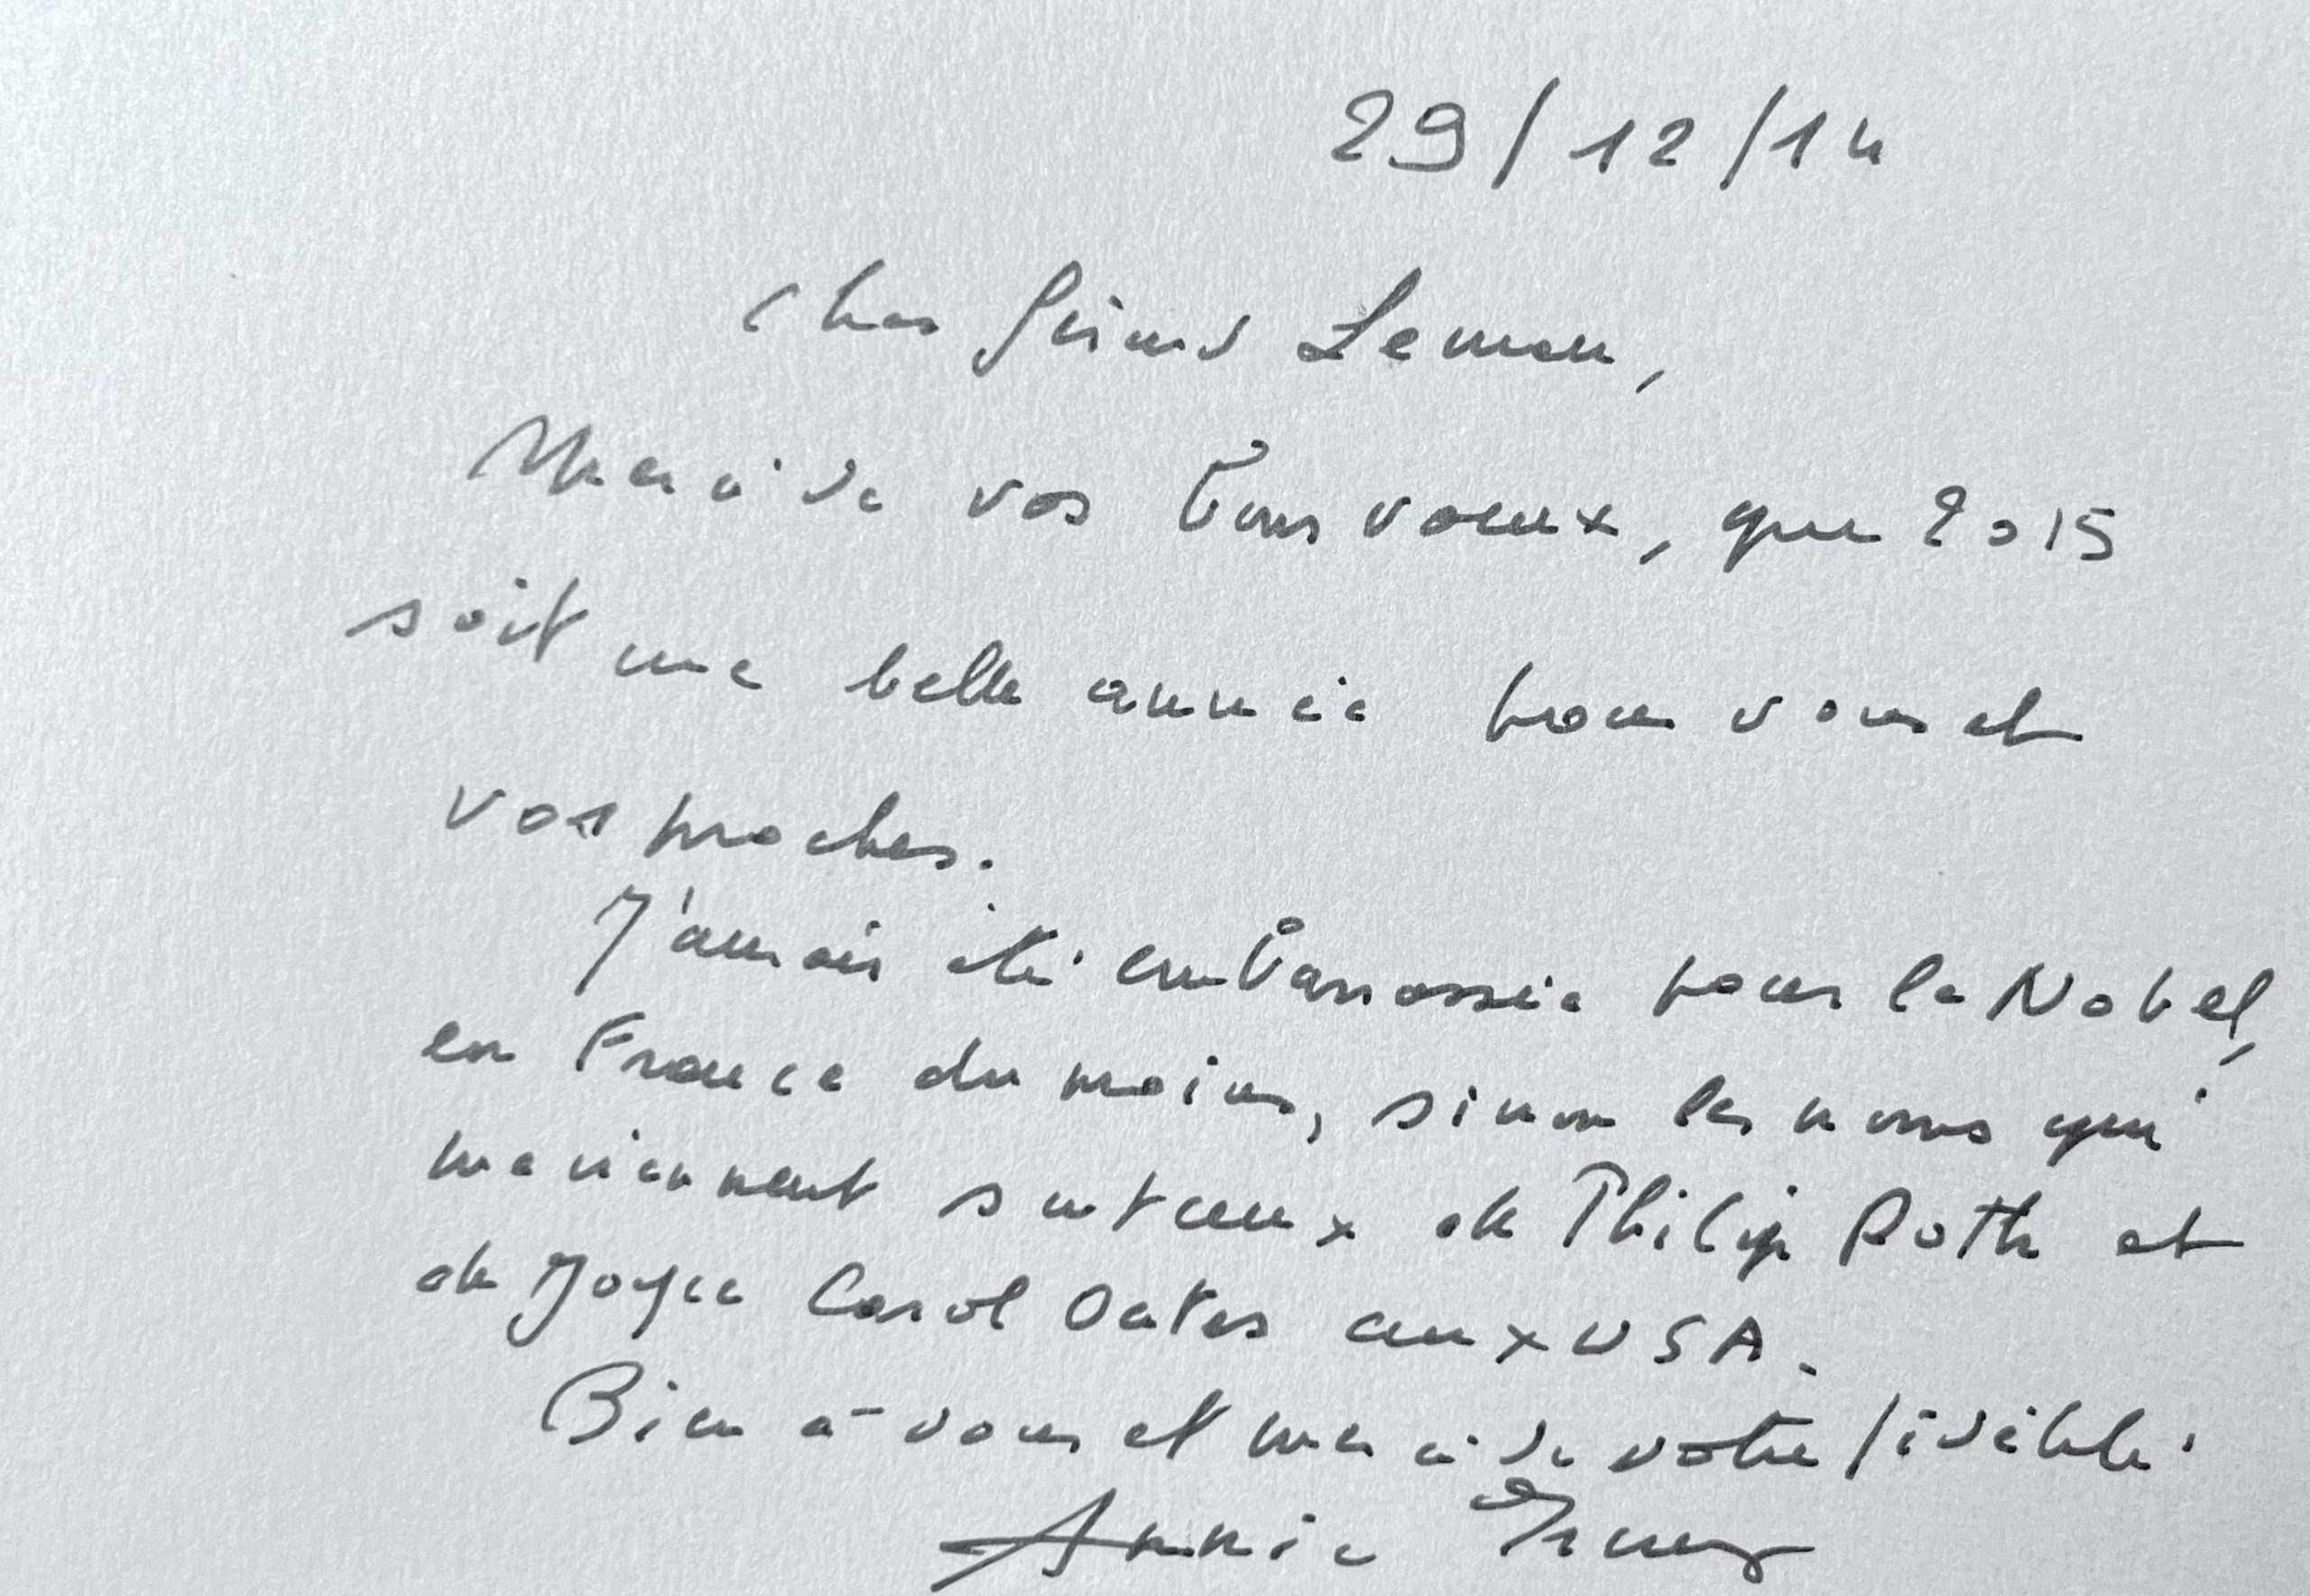 29/12/14
Cher Leman,
Merci de vos bons voeux, que 2015
soit une belle année pour vous et
vos proches.
J'aurais été embarrassée pour le Nobel,
en France du moins, sinon les noms qui
me viennent sont ceux de Philip Roth et
de Joyce Carol Oates aux USA.
Bien à vous et merci de votre fidélité.
Annie Ernaux